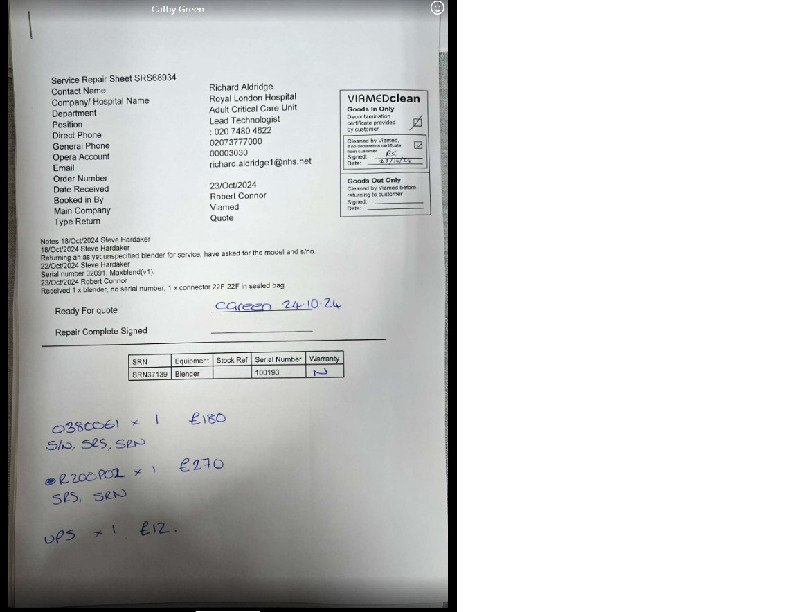 Cathy Green
Service Repair Sheet SRS68934
Contact Name Richard Aldridge
Company/ Hospital Name Royal London Hospital
Department Adult Critical Care Unit
Position Lead Technologist
Direct Phone : 020 7480 4822
General Phone 02073777000
Opera Account 00003030
Email richard.aldridge1@nhs.net
Order Number
Date Received 23/Oct/2024
Booked in By Robert Connor
Main Company Viamed
Type Return Quote
VIAMEDclean
Goods In Only
Decontamination
certificate provided
by customer
Cleaned by Viamed,
if no decontamination certificate
from customer
Signed: RC
Date:
Goods Out Only
Cleaned by Viamed before
returning to customer
Signed:
Date:
Notes 18/Oct/2024 Steve Hardaker
18/Oct/2024 Steve Hardaker
Returning an as yet unspecified blender for service, have asked for the model and s/no.
22/Oct/2024 Steve Hardaker
Serial number 02091, Maxblend(v1).
23/Oct/2024 Robert Connor
Received 1 x blender, no serial number, 1 x connector 22F-22F in sealed bag
Ready For quote CGreen 24.10.24
Repair Complete Signed
SRN Equipment Stock Ref Serial Number Warranty
SRN37139 Blender 100190 N
038C061 × 1 £180
S/N, SRS, SRN
R200P02 × 1 £270
SRS, SRN
UPS × 1 £12.